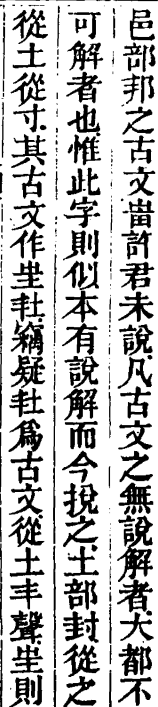 邑部邦之古文𤰫許君未說凡古文之無說解者大都不
可解者也惟此字則似本有說解而今挩之土部封從之
從土從寸其古文作𡉚𡉘竊疑𡉘爲古文從土丰聲𡉚則